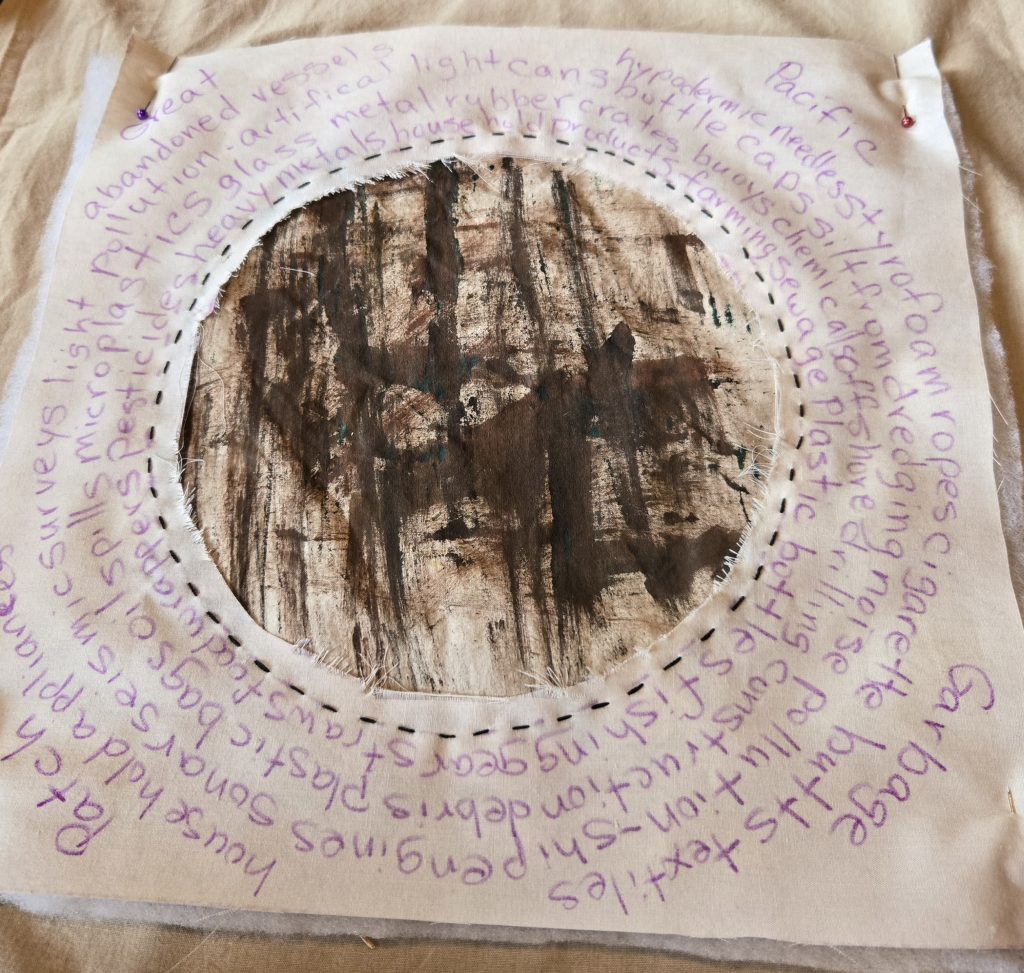 Great
Pacific
Garbage
Patch
abandoned vessels
hypodermic needles styrofoam ropes cigarette butts textiles
household appliances
light pollution-artifical light cans bottle caps silt from dredging noise pollution-ship engines sonar seismic surveys
microplastics glass metal rubber crates buoys chemicals offshore drilling construction debris plastic bags oil spills
pesticides heavy metals household products farming sewage plastic bottles fishing gear straws food wrappers